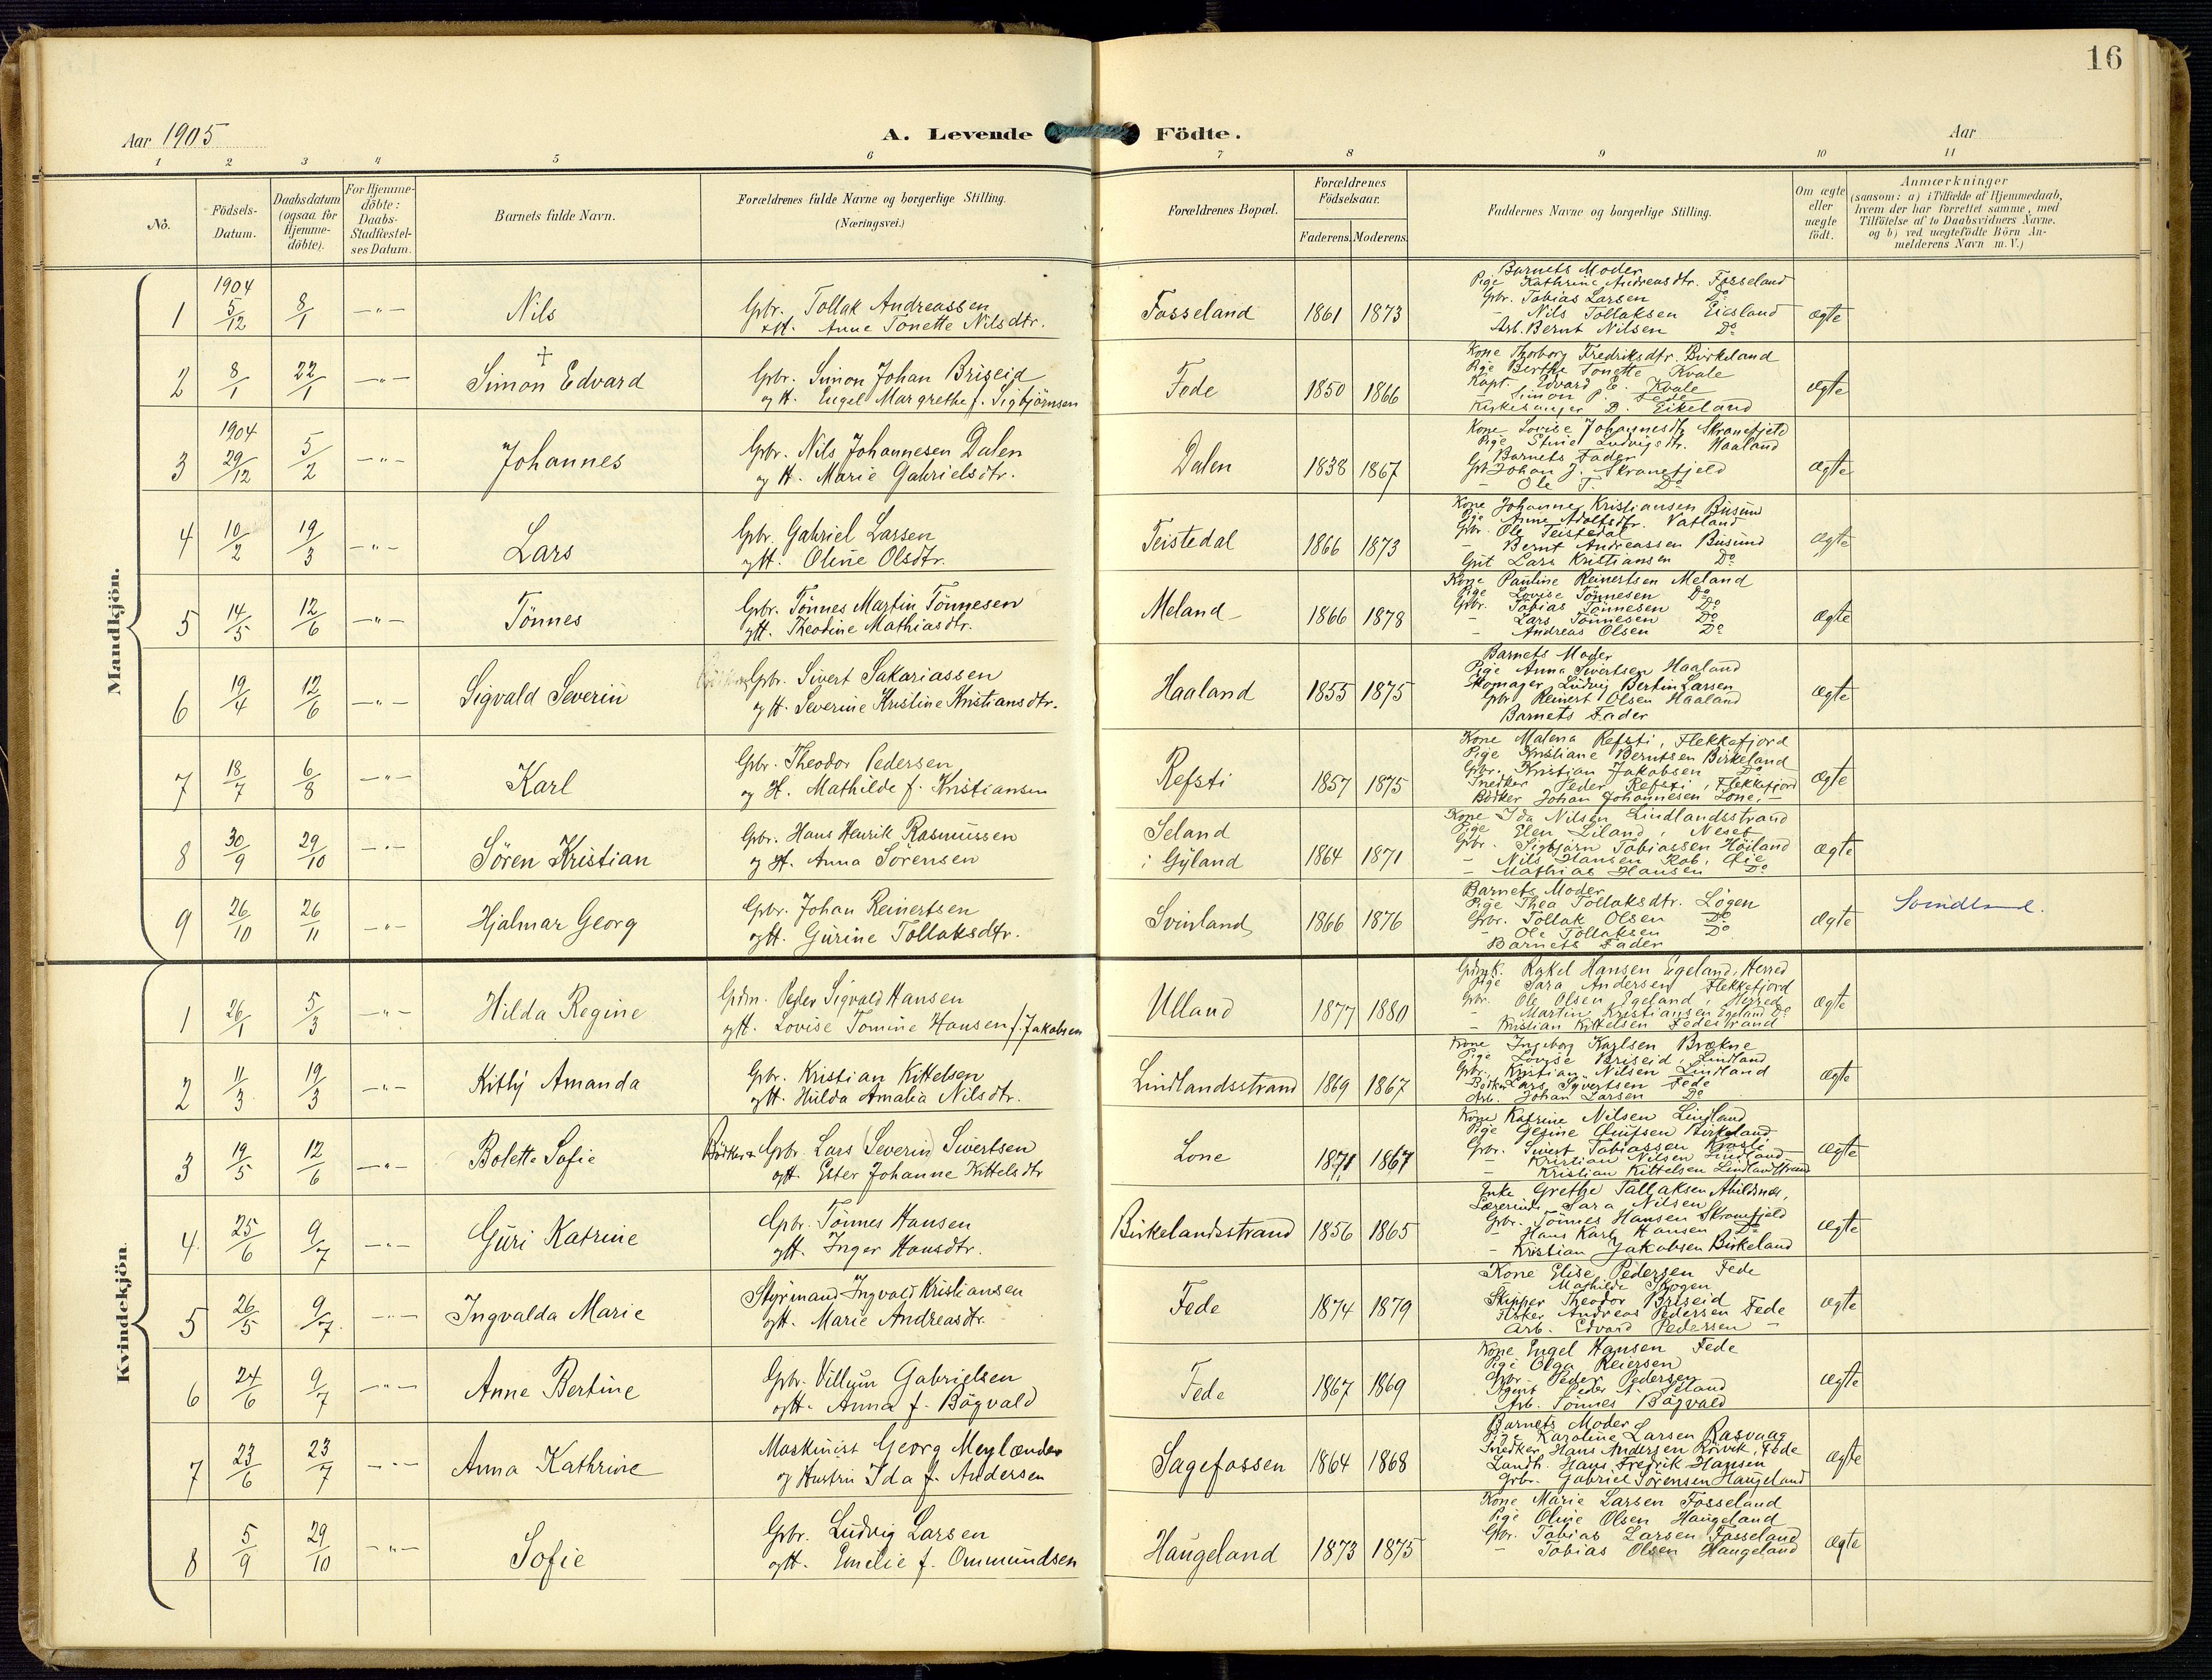 16
Aar 1905
A. Levende Födte.
Aar
1 2 3 4 5 6 7 8 9 10 11
No.
Födsels-Datum.
Daabsdatum (ogsaa for Hjemme-döbte).
For Hjemme-döbte: Daabs-Stadfæstel-ses Datum.
Barnets fulde Navn.
Forældrenes fulde Navne og borgerlige Stilling.
(Næringsvei.)
Forældrenes Bopæl.
Forældrenes Födselsaar.
Faderens. Moderens.
Faddernes Navne og borgerlige Stilling.
Om ægte eller uægte födt.
Anmærkninger
(saasom: a) i Tilfælde af Hjemmedaab, hvem der har forrettet samme, med Tilföielse af to Daabsvidners Navne. og b) ved uægtefödte Börn An-melderens Navn m. V.)
Mandkjön.
1 1904 5/12 8/1 -„- Nils
Gbr. Tollak Andreassen
og H. Anne Tonette Nilsdtr.
Fosseland 1861 1873
Barnets Moder
Pige Kathrine Andreasdtr. Fosseland
Gbr. Tobias Larsen Do
- Nils Tollaksen Eiesland
Arb. Bernt Nilsen Do
ægte
2 8/1 22/1 -„- † Simon Edvard
Gbr. Simon Johan Briseid
og H. Engel Margrethe f. Sigbjörnsen
Fede 1850 1866
Kone Thorborg Fredriksdtr. Birkeland
Pige Berthe Tonette Kvale
Kapt. Edvard E. Kvale
- Simon P. Fede
Kirkesanger D. Eikeland
ægte
3 1904 29/12 5/2 -„- Johannes
Gbr. Nils Johannesen Dalen
og H. Marie Gabrielsdtr.
Dalen 1838 1867
Kone Lovise Johannesdtr. Skranefjeld
Pige Stine Ludvigsdtr. Haaland
Barnets Fader
Gbr. Johan J. Skranefjeld
- Ole T. Do
ægte
4 10/2 19/3 -„- Lars
Gbr. Gabriel Larsen
og H. Oline Olsdtr.
Teistedal 1866 1873
Kone Johanne Kristiansen Busund
Pige Anne Adolfsdtr. Vatland
Gbr. Ole Teistedal
- Bernt Andreassen Busund
Gut Lars Kristiansen Do
ægte
5 14/5 12/6 -„- Tönnes
Gbr. Tönnes Martin Tönnesen
og H. Theodine Mathiasdtr.
Meland 1866 1878
Kone Pauline Reinertsen Meland
Pige Lovise Tönnesen Do
Gbr. Tobias Tönnesen Do
- Lars Tönnesen Do
- Andreas Olsen Do
ægte
6 19/4 12/6 -„- Sigvald Severin
Gbr. Sivert Sakariassen
og H. Severine Kristine Kristiansdtr.
Haaland 1855 1875
Barnets Moder
Pige Anna Sivertsen Haaland
Skomager Ludvig Bertin Larsen
Gbr. Reinert Olsen Haaland
Barnets Fader
ægte
7 18/7 6/8 -„- Karl
Gbr. Theodor Pedersen
og H. Mathilde f. Kristiansen
Refsti 1857 1875
Kone Malena Refsti, Flekkefjord
Pige Kristiane Berntsen Birkeland
Gbr. Kristian Jakobsen Do
Snedker Peder Refsti, Flekkefjord
Bödker Johan Johannesen Lone. -
ægte
8 30/9 29/10 -„- Sören Kristian
Gbr. Hans Henrik Rasmussen
og H. Anna Sörensen
Seland
i Gyland 1864 1871
Kone Ida Nilsen Lindlandsstrand
Pige Elen Liland, Neset
Gbr. Sigbjörn Tobiassen Höiland
- Nils Hansen Rob,
- Mathias Hansen Do
ægte
9 26/10 26/11 -„- Hjalmar Georg
Gbr. Johan Reinertsen
og H. Gurine Tollaksdtr.
Svinland 1866 1876
Barnets Moder
Pige Thea Tollaksdtr. Lögen
Gbr. Tollak Olsen Do
- Ole Tollaksen Do
Barnets Fader
ægte Svindland.
Kvindekjön.
1 26/1 5/3 -„- Hilda Regine
Gdm. Peder Sigvald Hansen
og H. Lovise Tomine Hansen f. Jakobsen
Ulland 1877 1880
Rakel Hansen Egeland, Herred
Pige Sara Andersen Flekkefjord
Gbr. Ole Olsen Egeland, Herred
- Martin Kristiansen Egeland Do
- Kristian Kittelsen Fedestrand
ægte
2 11/3 19/3 -„- Kitty Amanda
Gbr. Kristian Kittelsen
og H. Hulda Amalia Nilsdtr.
Lindlandsstrand 1869 1867
Kone Ingeborg Karlsen Brækne
Pige Lovise Briseid, Lindland
Gbr. Kristian Nilsen Lindland
Bödker Lars Syvertsen Fede
Arb. Johan Larsen Do
ægte
3 19/5 12/6 -„- Bolette Sofie
Bödker & Gbr. Lars (Severin) Sivertsen
og H. Ester Johanne Kittelsdtr
Lone 1871 1867
Kone Katrine Nilsen Lindland
Pige Gesine Olufsen Birkeland
Gbr. Sivert Tobiassen
- Kristian Nilsen Lindland
- Kristian Kittelsen Lindlandstrand
ægte
4 25/6 9/7 -„- Guri Katrine
Gbr. Tönnes Hansen
og H. Inger Hansdtr.
Birkelandsstrand 1856 1865
Enke Grethe Tallaksen Abildsnes,
Lærerinde Sara Nilsen
Gbr. Tönnes Hansen Skranefjeld
- Hans Karl Hansen Do
- Kristian Jakobsen Birkeland
ægte
5 26/5 9/7 -„- Ingvalda Marie
Styrmand Ingvald Kristiansen
og H. Marie Andreasdtr.
Fede 1874 1879
Kone Elise Pedersen Fede
- Mathilde Skogen
Skipper Theodor Briseid
Fisker Andreas Pedersen Fede
Arb. Edvard Pedersen -
ægte
6 24/6 9/7 -„- Anne Bertine
Gbr. Villum Gabrielsen
og H. Anna f. Bögvald
Fede 1867 1869
Kone Engel Hansen Fede
Pige Olga Reiersen
Gbr. Peder Pedersen
Agent Peder N. Seland
Arb. Tönnes Bögvald
ægte
7 23/6 23/7 -„- Anna Kathrine
Maskinist Georg Meylænder
og Hustru Ida f. Andersen
Sagefossen 1864 1868
Barnets Moder
Pige Karoline Larsen Rasvaag
Snedker Hans Andersen Rörvik, Fede
Landh. Hans Fredrik Hansen
Gbr. Gabriel Sörensen Haugeland
ægte
8 5/9 29/10 -„- Sofie
Gbr. Ludvig Larsen
og H. Emelie f. Ommundsen
Haugeland 1873 1875
Kone Marie Larsen Fosseland
Pige Oline Olsen Haugeland
Gbr. Tobias Larsen Fosseland
- Tobias Olsen Haugeland
ægte